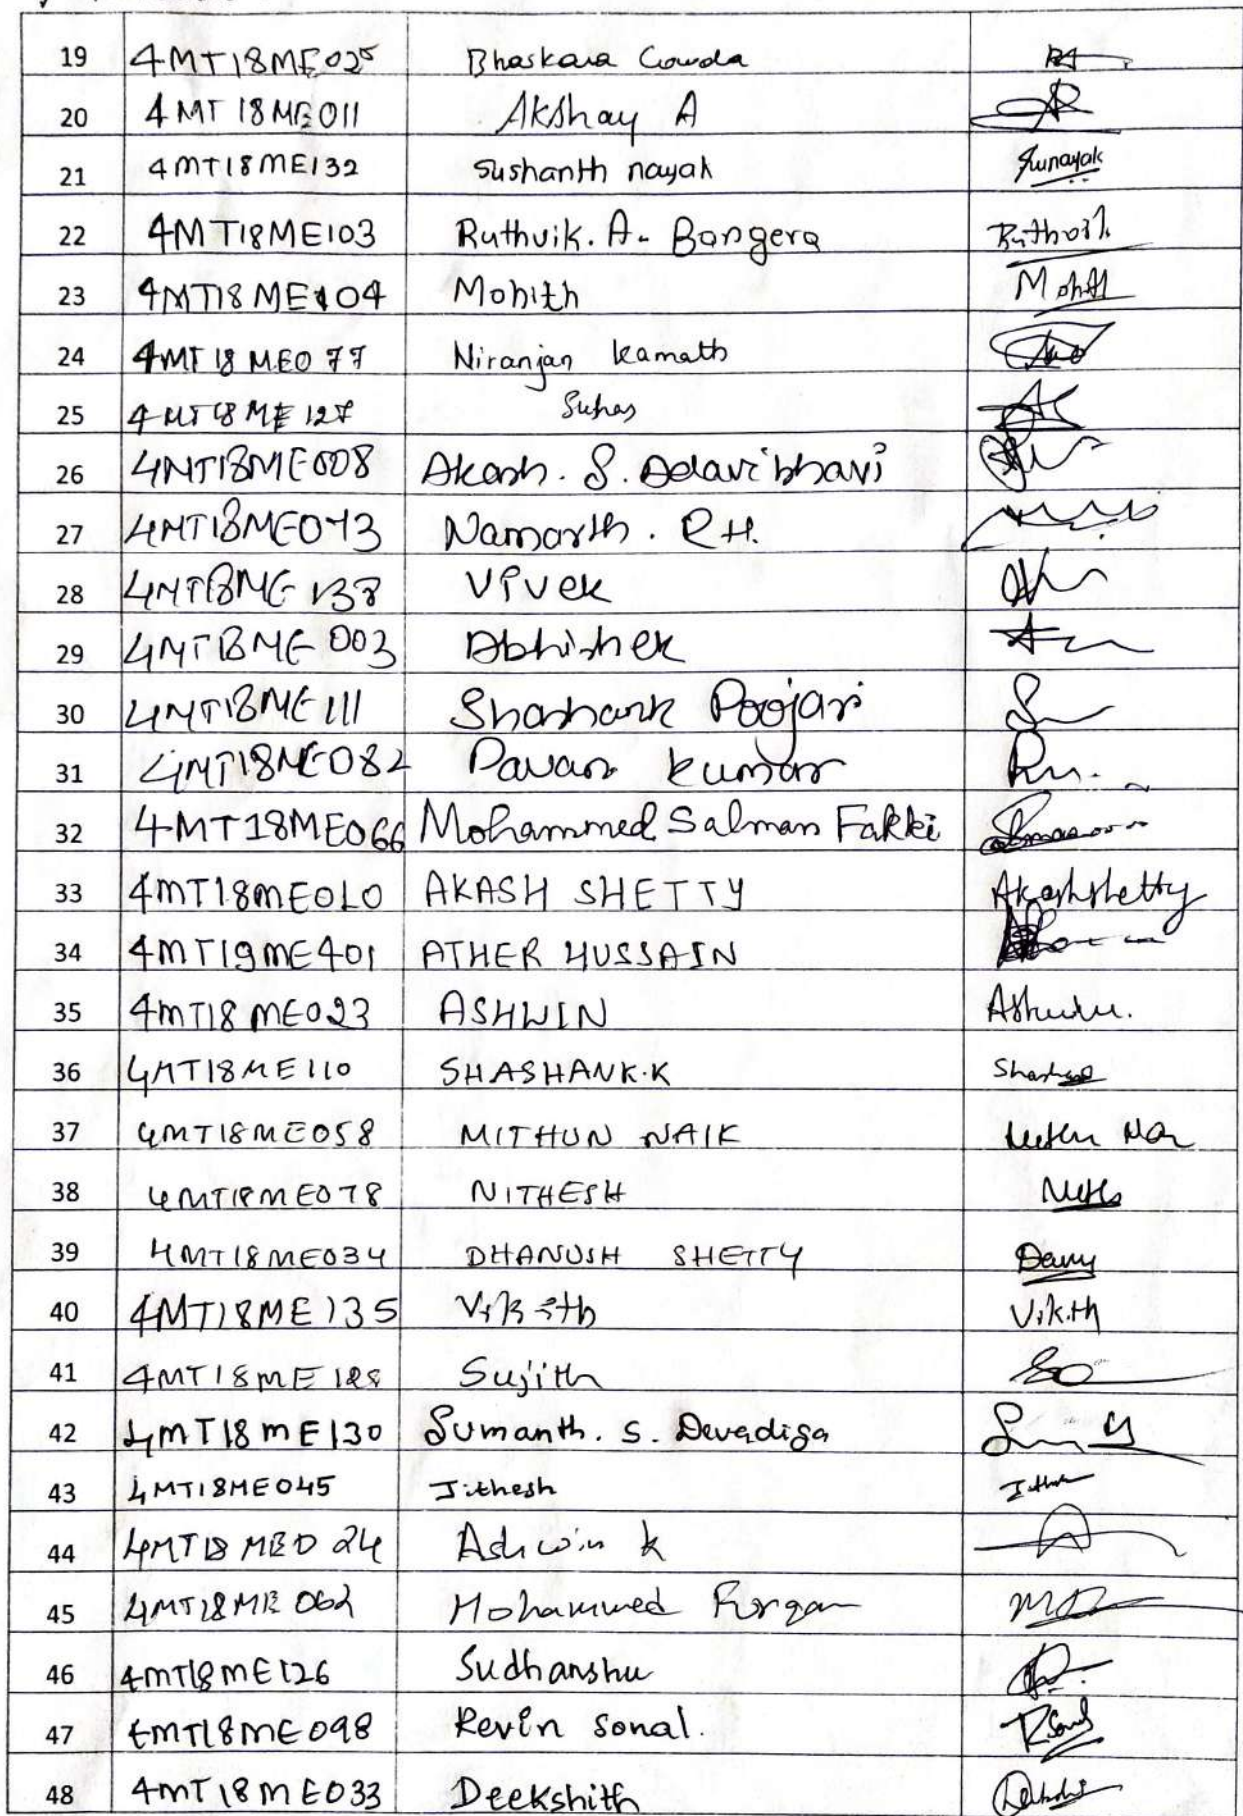 19 4MT18ME025 Bhaskara Gowda
20 4MT18ME011 Akshay A
21 4MT18ME132 Sushanth nayak Sunayak
22 4MT18ME103 Ruthvik. A. Bangera Ruthvik
23 4MT18ME104 Mohith Mohith
24 4MT18ME077 Niranjan kamath
25 4MT18ME127 Suhas
26 4MT18ME008 Akash. S. Adavibhavi
27 4MT18ME073 Namarth. R H.
28 4MT18ME138 Vivek
29 4MT18ME003 Abhishek
30 4MT18ME111 Shashank Poojari
31 4MT18ME082 Pavan kumar
32 4MT18ME066 Mohammed Salman Fakki
33 4MT18ME010 AKASH SHETTY Akashshetty
34 4MT19ME401 ATHER HUSSAIN
35 4MT18ME023 ASHWIN Ashwin.
36 4MT18ME110 SHASHANK.K
37 4MT18ME058 MITHUN NAIK
38 4MT18ME078 NITHESH
39 4MT18ME034 DHANUSH SHETTY
40 4MT18ME135 Vikith Vikith
41 4MT18ME128 Sujith
42 4MT18ME130 Sumanth. S. Devadiga
43 4MT18ME045 Jithesh
44 4MT18ME024 Ashwin k
45 4MT18ME062 Mohammed Furqan
46 4MT18ME126 Sudhanshu
47 4MT18ME098 Revin sonal.
48 4MT18ME033 Deekshith